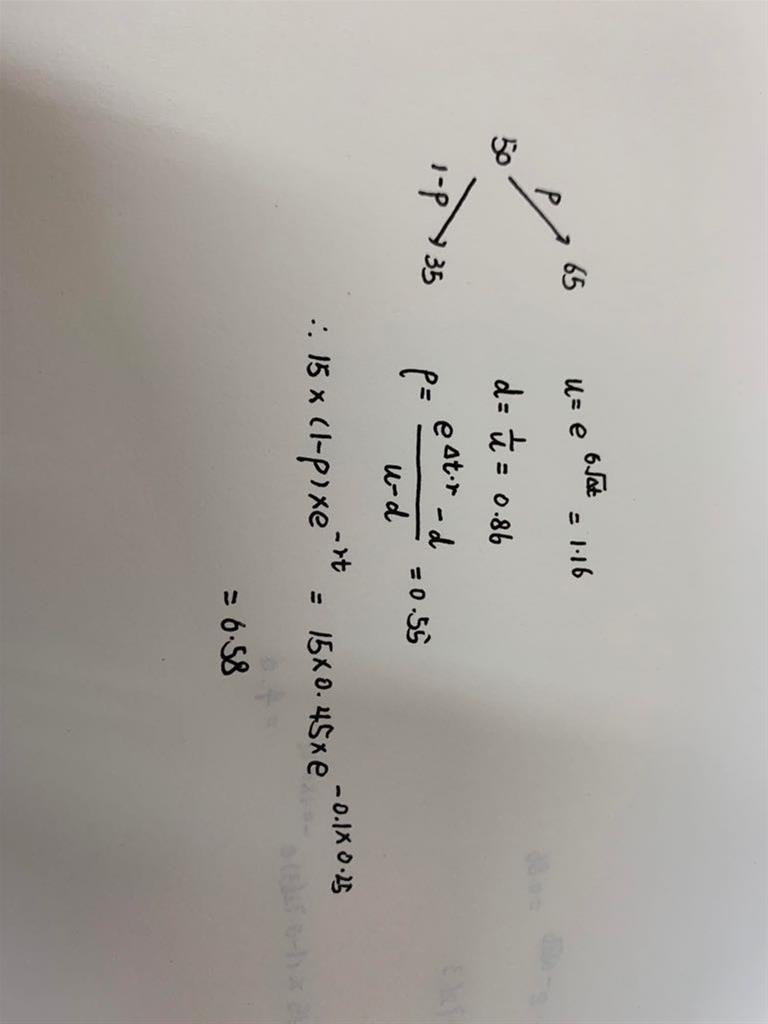 50
P 65
1-P 35
u = e^6√Δt = 1.16
d = 1/u = 0.86
P = (e^Δt·r - d)/(u-d) = 0.55
∴ 15 × (1-P) × e^-rt = 15 × 0.45 × e^-0.1×0.25
= 6.58